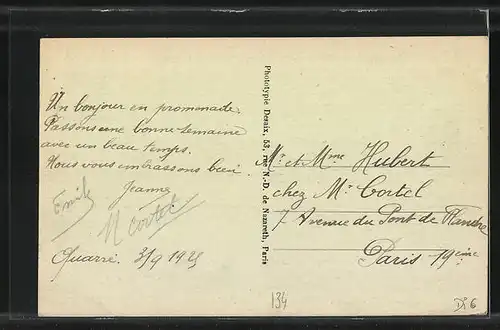 Un bonjour en promenade.
Passons une bonne semaine
avec un beau temps.
Nous vous embrassons bien
Jeanne
Emile
M Cortel
Quarré. 3/9 1925
Phototypie Desaix, 53, rue N.-D. de Nazareth, Paris
Mr et Mme Hubert
chez Mr Cortel
7 Avenue du Pont de Flandre
Paris 19ème
134